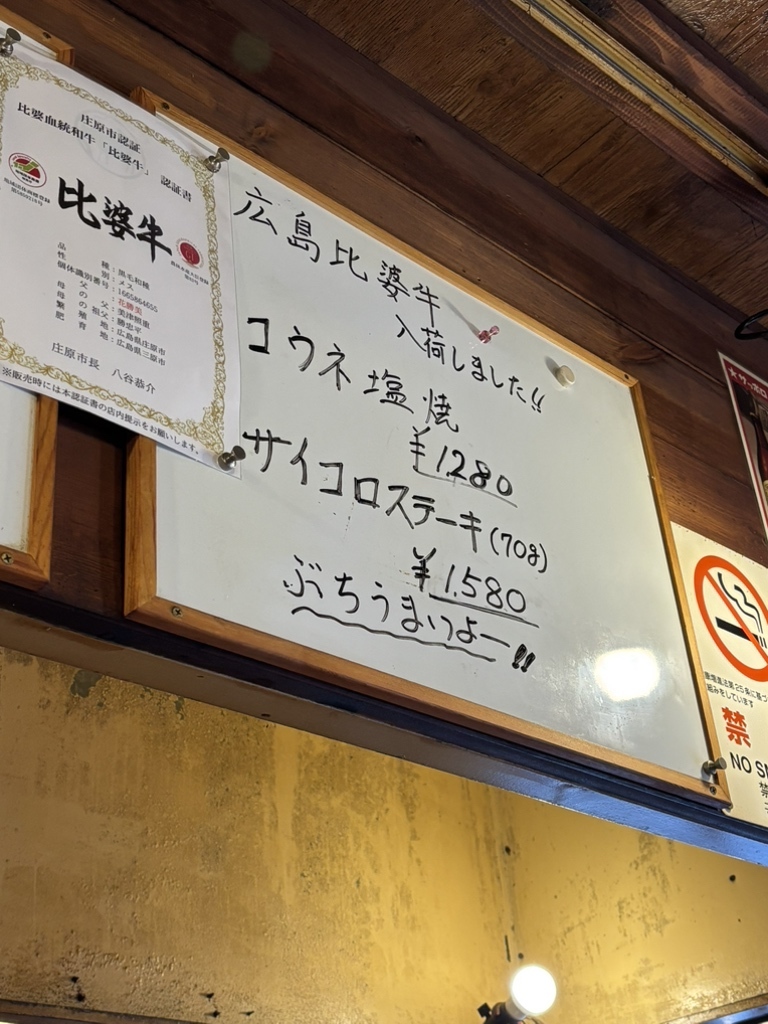 庄原市認証
比婆血統和牛「比婆牛」 認証書
比婆牛
品種:黒毛和種
性別:メス
個体識別番号:1665864655
父:花勝美
母の父:美津照重
母の祖父:勝忠平
繁殖地:広島県庄原市
肥育地:広島県三原市
庄原市長 八谷恭介
※販売時には本認証書の店内提示をお願いします。
広島比婆牛
入荷しました!!
コウネ塩焼
¥1.280
サイコロステーキ(70g)
¥1.580
ぶちうまいよー!!
禁
NO SM